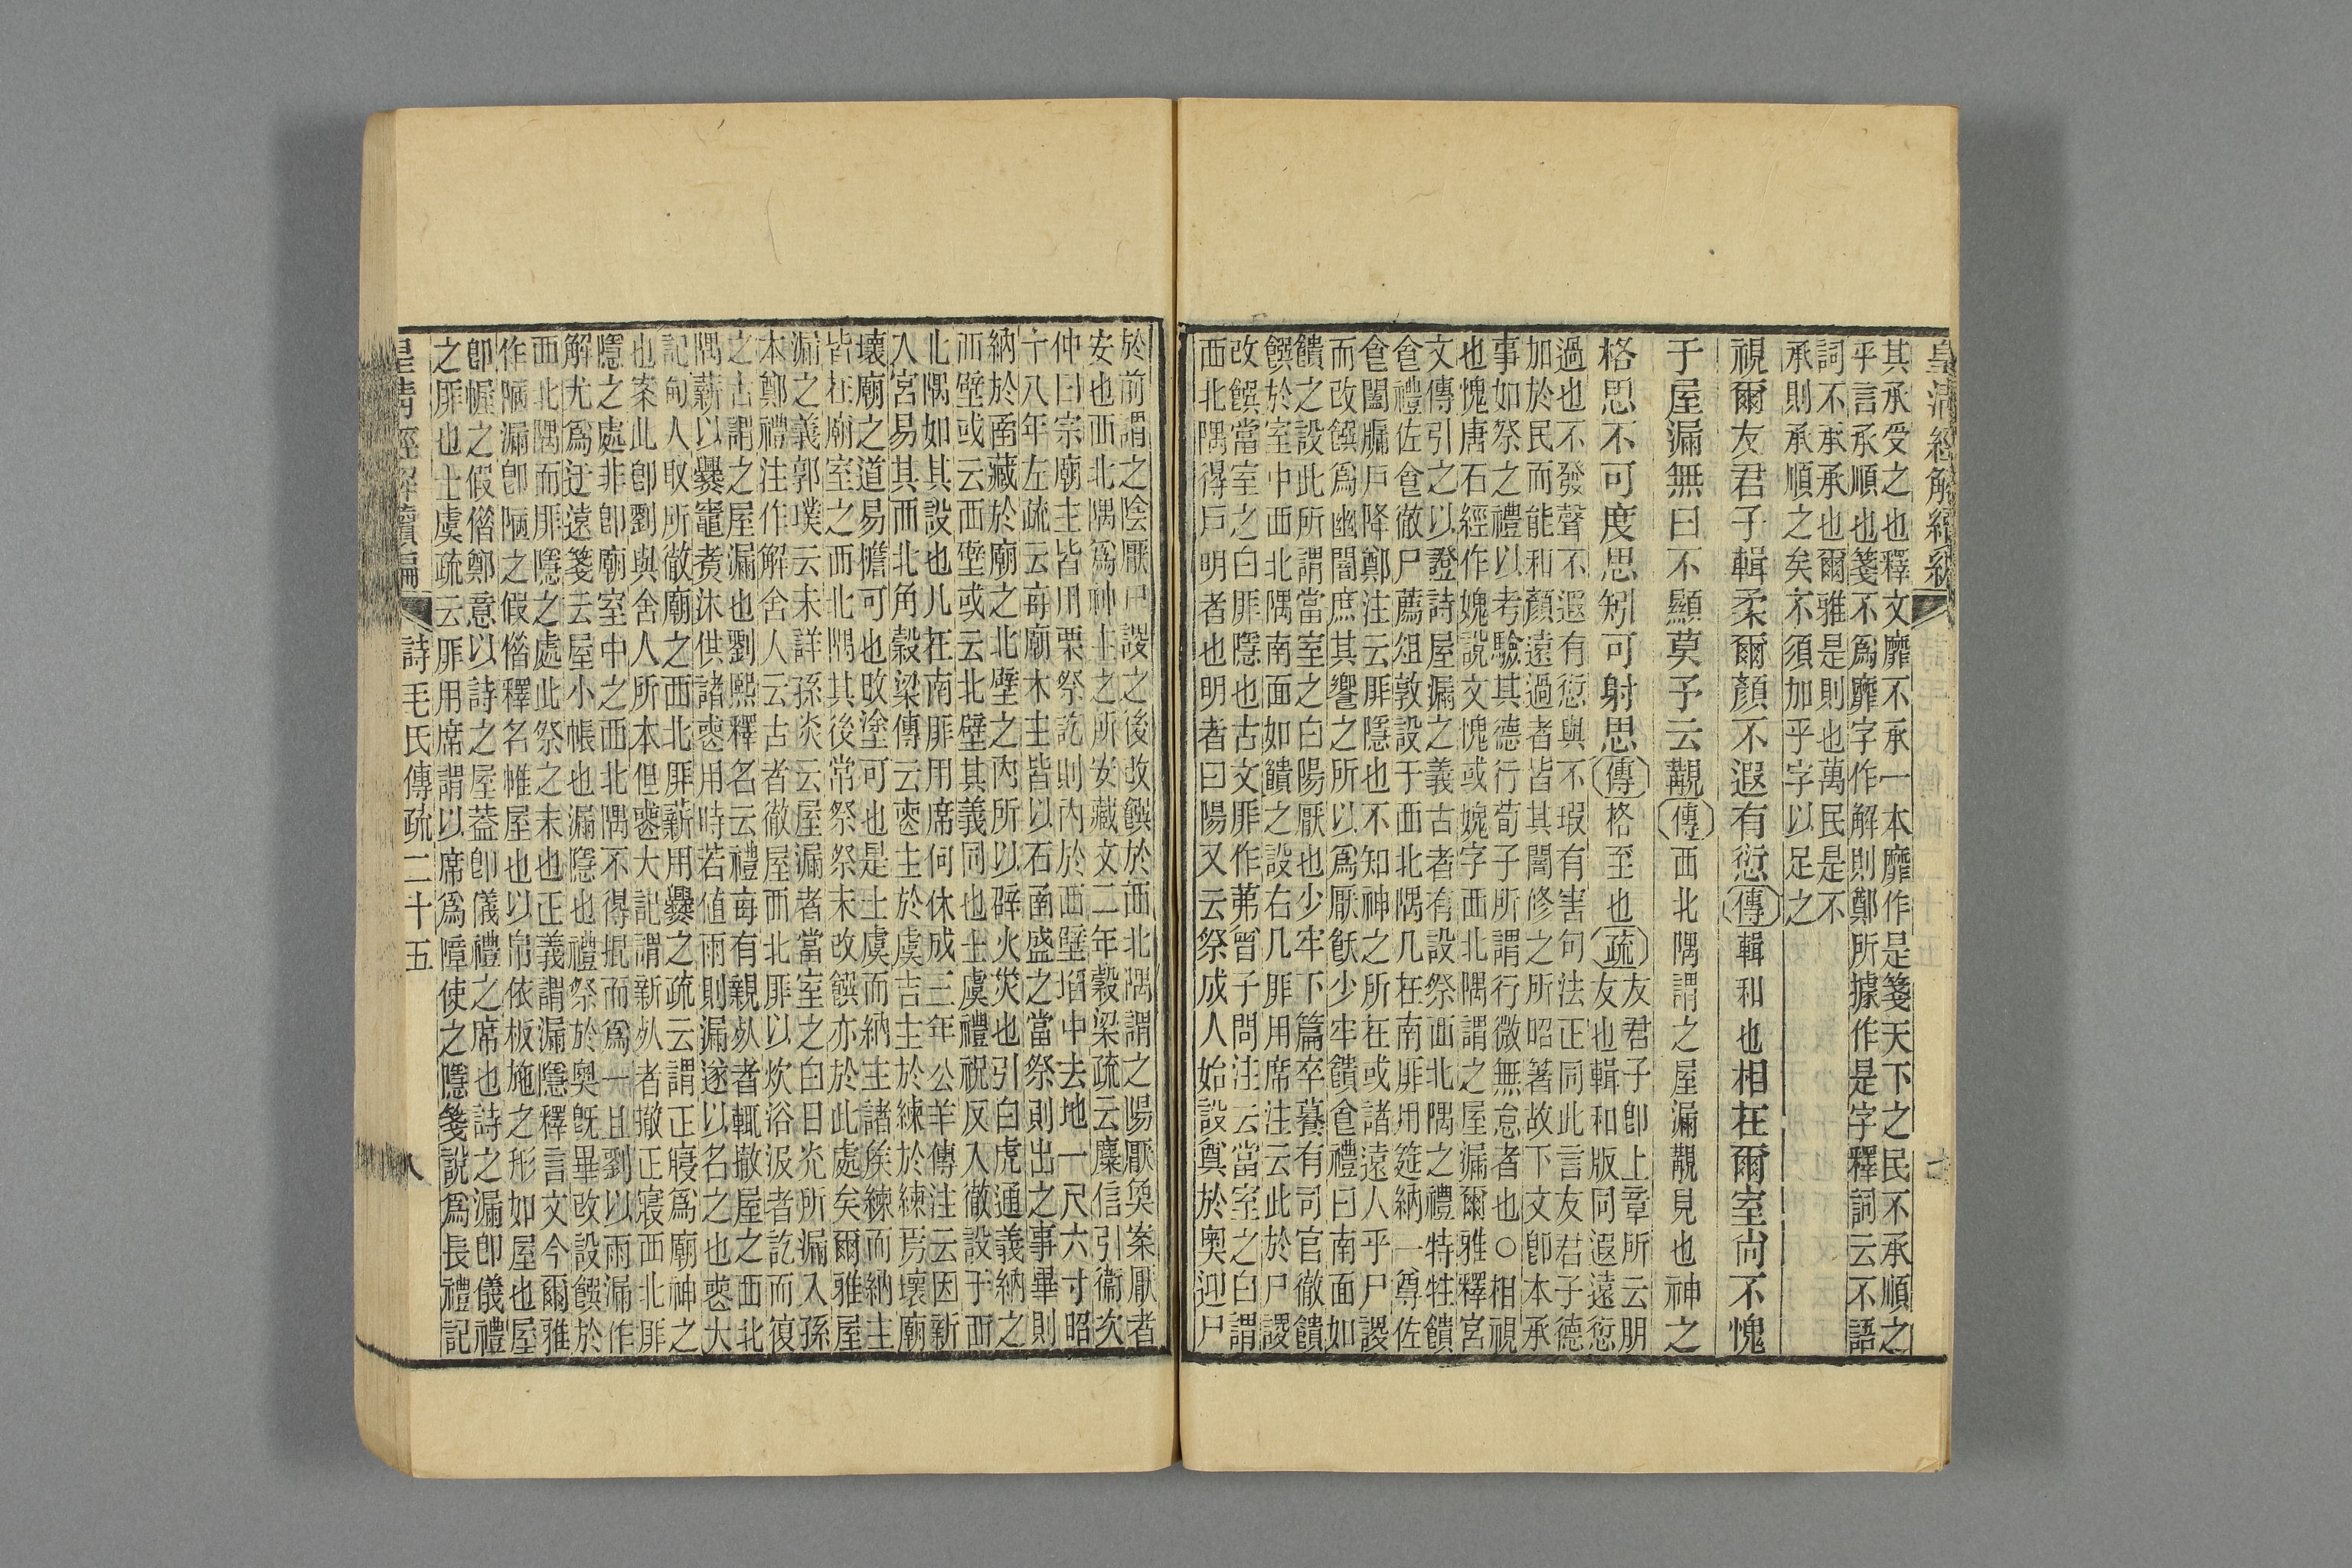 皇清經解續編
其承受之也釋文靡不承一本靡作是箋天下之民不承順之
乎言承順也箋不爲靡字作解則鄭所據作是字釋詞云不語
詞不承承也爾雅是則也萬民是不
承則承順之矣不須加乎字以足之
視爾友君子輯柔爾顏不遐有愆傳輯和也相在爾室尚不愧
于屋漏無曰不顯莫予云覯傳西北隅謂之屋漏覯見也神之
格思不可度思矧可射思傳格至也疏友君子卽上章所云朋
友也輯和版同遐遠愆
過也不發聲不遐有愆與不瑕有害句法正同此言友君子德
加於民而能和顏遠過者皆其闇修之所昭著故下文卽本承
事如祭之禮以考驗其德行荀子所謂行微無怠者也○相視
也愧唐石經作媿說文愧或媿字西北隅謂之屋漏爾雅釋宮
文傳引之以證詩屋漏之義古者有設祭西北隅之禮特牲饋
食禮佐食徹尸薦俎敦設于西北隅几在南厞用筵納一尊佐
食闔牖戶降鄭注云厞隱也不知神之所在或諸遠人乎尸謖
而改饌爲幽闇庶其饗之所以爲厭飫少牢饋食禮曰南面如
饋之設此所謂當室之白陽厭也少牢下篇卒䬸有司官徹饋
饌於室中西北隅南面如饋之設右几厞用席注云此於尸謖
改饌當室之白厞隱也古文厞作茀曾子問注云當室之白謂
西北隅得戶明者也明者曰陽又云祭成人始設奠於奧迎尸
於前謂之陰厭尸謖之後改饌於西北隅謂之陽厭奐案厭者
安也西北隅爲神主之所安藏文二年穀梁疏云麋信引衞次
仲曰宗廟主皆用栗祭訖則內於西壁埳中去地一尺六寸昭
十八年左疏云每廟木主皆以石函盛之當祭則出之事畢則
納於函藏於廟之北壁之內所以辟火災也引白虎通義納之
西壁或云西壁或云北壁其義同也士虞禮祝反入徹設于西
北隅如其設也几在南厞用席何休成三年公羊傳注云因新
入宮易其西北角穀梁傳云喪主於虞吉主於練於練焉壞廟
壞廟之道易檐可也改塗可也是士虞而納主諸侯練而納主
皆在廟室之西北隅其後常祭祭末改饌亦於此處矣爾雅屋
漏之義郭璞云未詳孫炎云屋漏者當室之白日光所漏入孫
本鄭禮注作解舍人云古者徹屋西北厞以炊浴汲者訖而復
之古謂之屋漏也劉熙釋名云禮每有親死者輒撤屋之西北
隅薪以爨竈煑沐供諸喪用時若值雨則漏遂以名之也喪大
記甸人取所徹廟之西北厞薪用爨之疏云謂正寢爲廟神之
也案此卽劉與舍人所本但喪大記謂新死者撤正寢西北厞
隱之處非卽廟室中之西北隅不得掍而爲一且劉以雨漏作
解尤爲迂遠箋云屋小帳也漏隱也禮祭於奧旣畢改設饌於
西北隅而厞隱之處此祭之末也正義謂漏隱釋言文今爾雅
作陋漏卽陋之假借釋名帷屋也以帛依板施之形如屋也屋
卽幄之假借鄭意以詩之屋蓋卽儀禮之席也詩之漏卽儀禮
之厞也士虞疏云厞用席謂以席爲障使之隱箋說爲長禮記
皇清經解續編 詩毛氏傳疏二十五 八